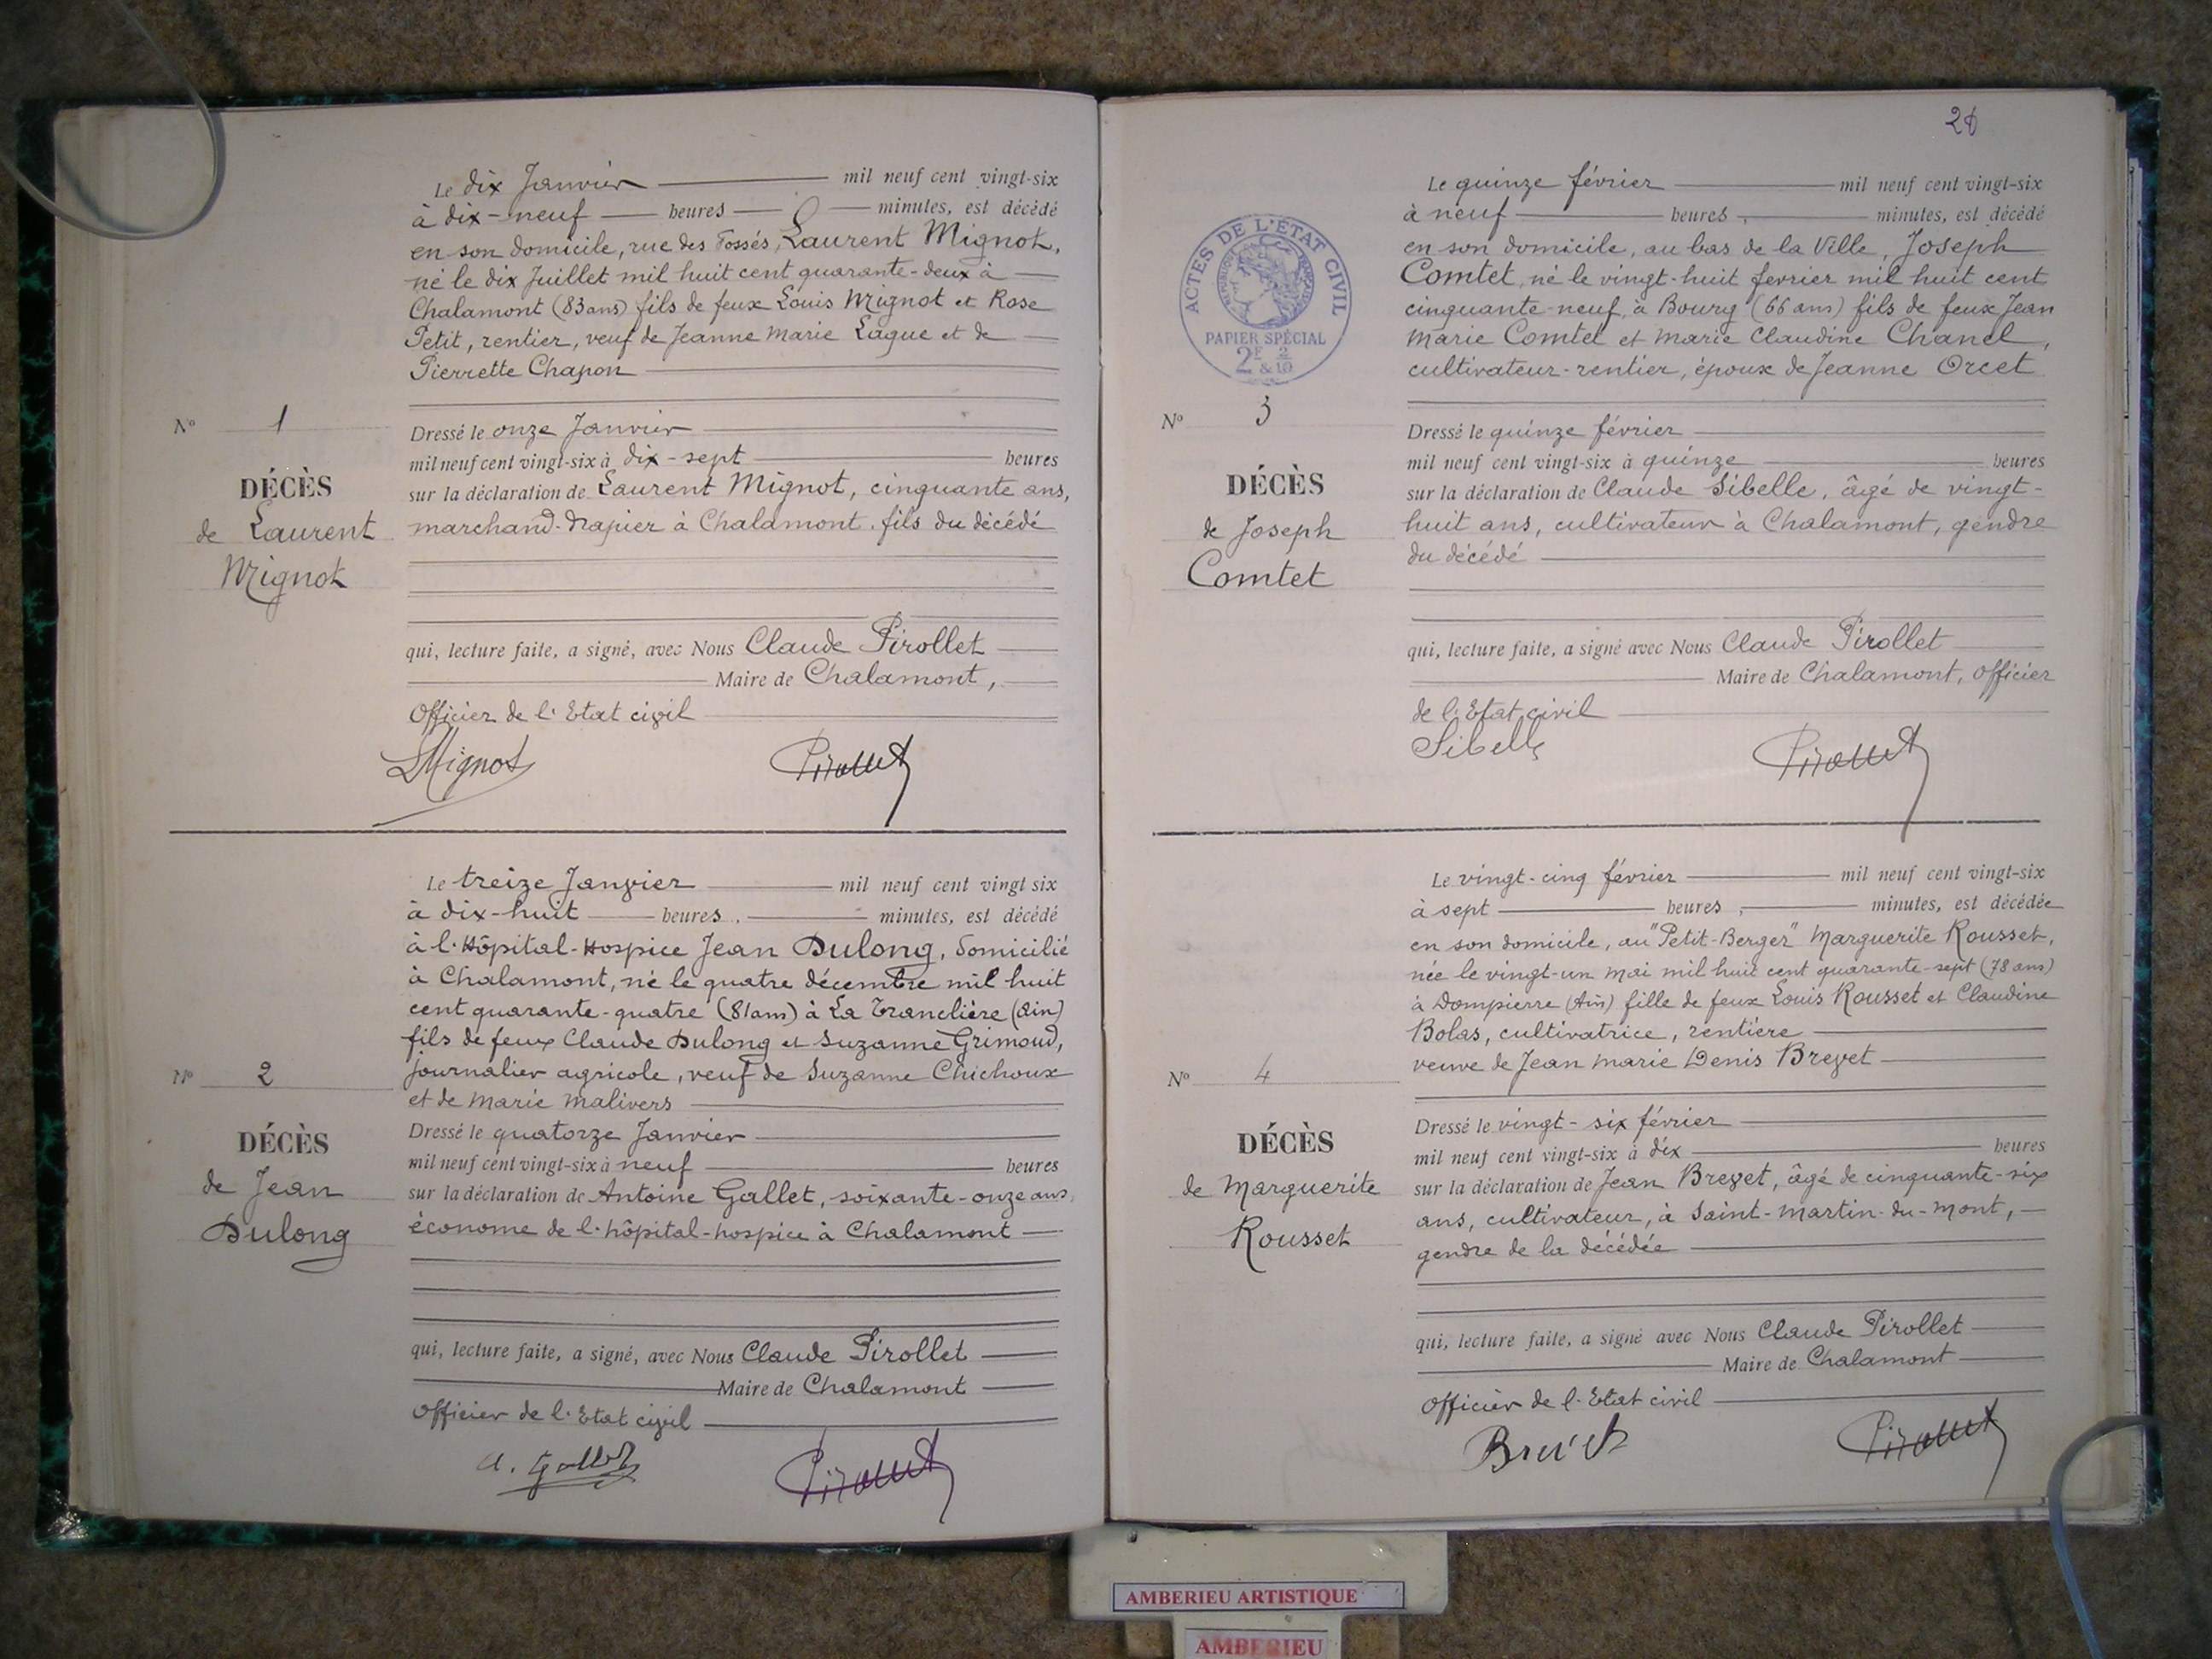 Le dix Janvier mil neuf cent vingt-six
à dix-neuf heures 0 minutes, est décédé
en son domicile, rue des Fossés, Laurent Mignot,
né le dix Juillet mil huit cent quarante-deux à
Chalamont (83 ans) fils de feux Louis Mignot et Rose
Petit, rentier, veuf de Jeanne Marie Lague et de
Pierrette Chapon
N° 1
DÉCÈS
de Laurent
Mignot
Dressé le onze Janvier
mil neuf cent vingt-six à dix-sept heures
sur la déclaration de Laurent Mignot, cinquante ans,
marchand-drapier à Chalamont, fils du décédé
qui, lecture faite, a signé, avec Nous Claude Pirollet
Maire de Chalamont,
Officier de l'Etat civil
LMignot Pirollet
Le treize Janvier mil neuf cent vingt six
à dix-huit heures minutes, est décédé
à l'Hôpital-Hospice Jean Dulong, domicilié
à Chalamont, né le quatre décembre mil huit
cent quarante-quatre (81 ans) à La Tranclière (Ain)
fils de feux Claude Dulong et Suzanne Grimoud,
journalier agricole, veuf de Suzanne Chichoux
et de Marie Malivers
N° 2
DÉCÈS
de Jean
Dulong
Dressé le quatorze Janvier
mil neuf cent vingt-six à neuf heures
sur la déclaration de Antoine Gallet, soixante-onze ans,
économe de l'hôpital-hospice à Chalamont
qui, lecture faite, a signé, avec Nous Claude Pirollet
Maire de Chalamont
Officier de l'Etat civil
A. Gallet Pirollet
28
ACTES DE L'ÉTAT CIVIL
PAPIER SPÉCIAL
2F & 2/10
Le quinze février mil neuf cent vingt-six
à neuf heures, minutes, est décédé
en son domicile, au bas de la Ville, Joseph
Comtet, né le vingt-huit fevrier mil huit cent
cinquante-neuf, à Bourg (66 ans) fils de feux Jean
Marie Comtet et Marie Claudine Chanel,
cultivateur-rentier, époux de Jeanne Orcet
N° 3
DÉCÈS
de Joseph
Comtet
Dressé le quinze février
mil neuf cent vingt-six à quinze heures
sur la déclaration de Claude Sibelle, âgé de vingt-
huit ans, cultivateur à Chalamont, gendre
du décédé
qui, lecture faite, a signé avec Nous Claude Pirollet
Maire de Chalamont, Officier
de l'Etat civil
Sibelle Pirollet
Le vingt-cinq février mil neuf cent vingt-six
à sept heures, minutes, est décédée
en son domicile, au "Petit-Berger" Marguerite Rousset,
née le vingt-un mai mil huit cent quarante-sept (78 ans)
à Dompierre (Ain) fille de feux Louis Rousset et Claudine
Bolas, cultivatrice, rentière
veuve de Jean Marie Denis Brevet
N° 4
DÉCÈS
de Marguerite
Rousset
Dressé le vingt-six février
mil neuf cent vingt-six à dix heures
sur la déclaration de Jean Brevet, âgé de cinquante-six
ans, cultivateur, à Saint-Martin-du-Mont,
gendre de la décédée
qui, lecture faite, a signé avec Nous Claude Pirollet
Maire de Chalamont
Officier de l'Etat civil
Brevet Pirollet
AMBERIEU ARTISTIQUE
AMBERIEU